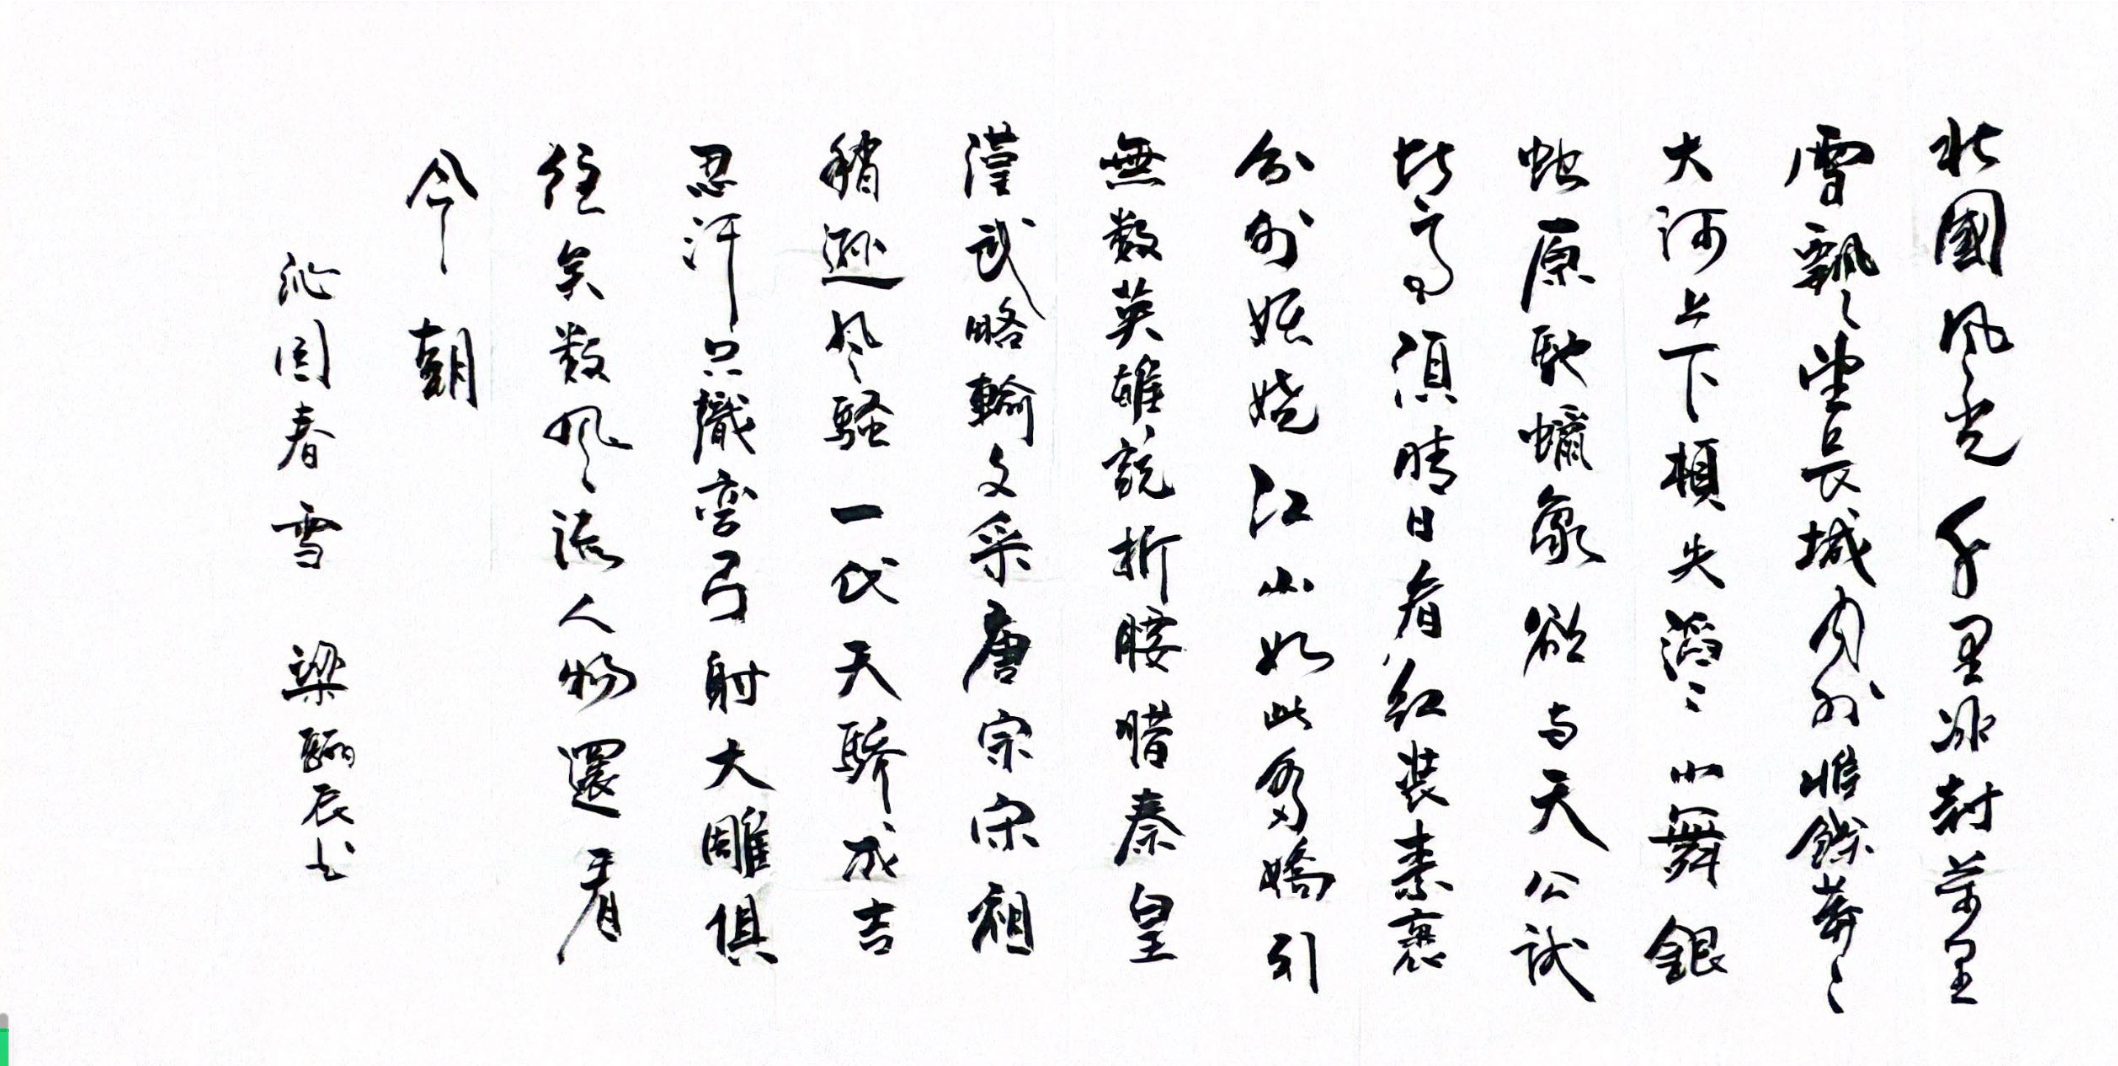 北國風光千里冰封萬里
雪飄飄望長城內外惟餘莽莽
大河上下頓失滔滔山舞銀
蛇原馳蠟象欲与天公試
比高須晴日看紅裝素裹
分外妖嬈江山如此多嬌引
無数英雄競折腰惜秦皇
漢武略輸文采唐宗宋祖
稍遜風騷一代天驕成吉
思汗只識彎弓射大雕俱
往矣数風流人物還看
今朝
沁園春雪 梁驪辰书